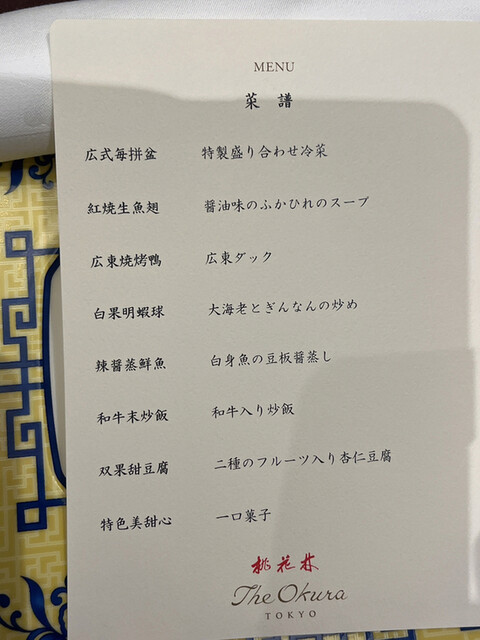 MENU
菜 譜
広式毎拼盆 特製盛り合わせ冷菜
紅焼生魚翅 醤油味のふかひれのスープ
広東焼烤鴨 広東ダック
白果明蝦球 大海老とぎんなんの炒め
辣醤蒸鮮魚 白身魚の豆板醤蒸し
和牛末炒飯 和牛入り炒飯
双果甜豆腐 二種のフルーツ入り杏仁豆腐
特色美甜心 一口菓子
桃花林
The Okura
TOKYO